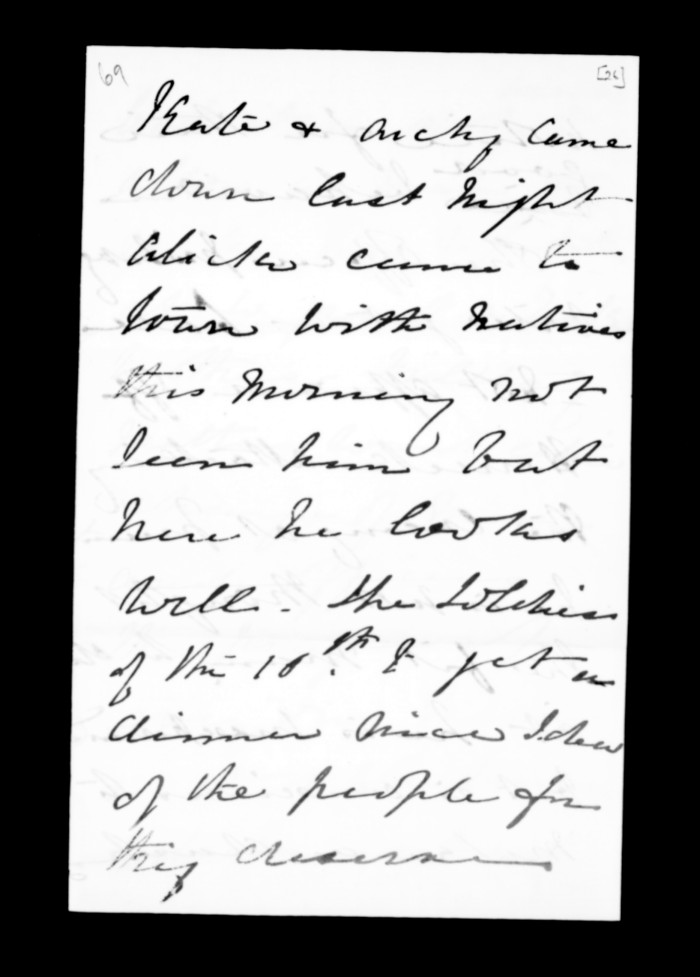 69
[26]
Kate & Archy came
down last night
Alicke came to
town with natives
this morning not
seen him but
hear he looks
well - the soldiers
of the 18th & get a
dinner nice Idea
of the people for
they deserve